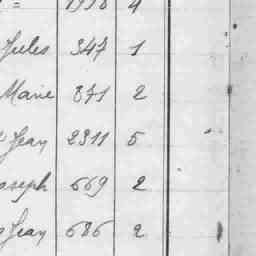 = 1998 4
Jules 347 1
Marie 871 2
Jean 2311 5
Joseph 669 2
Jean 686 2